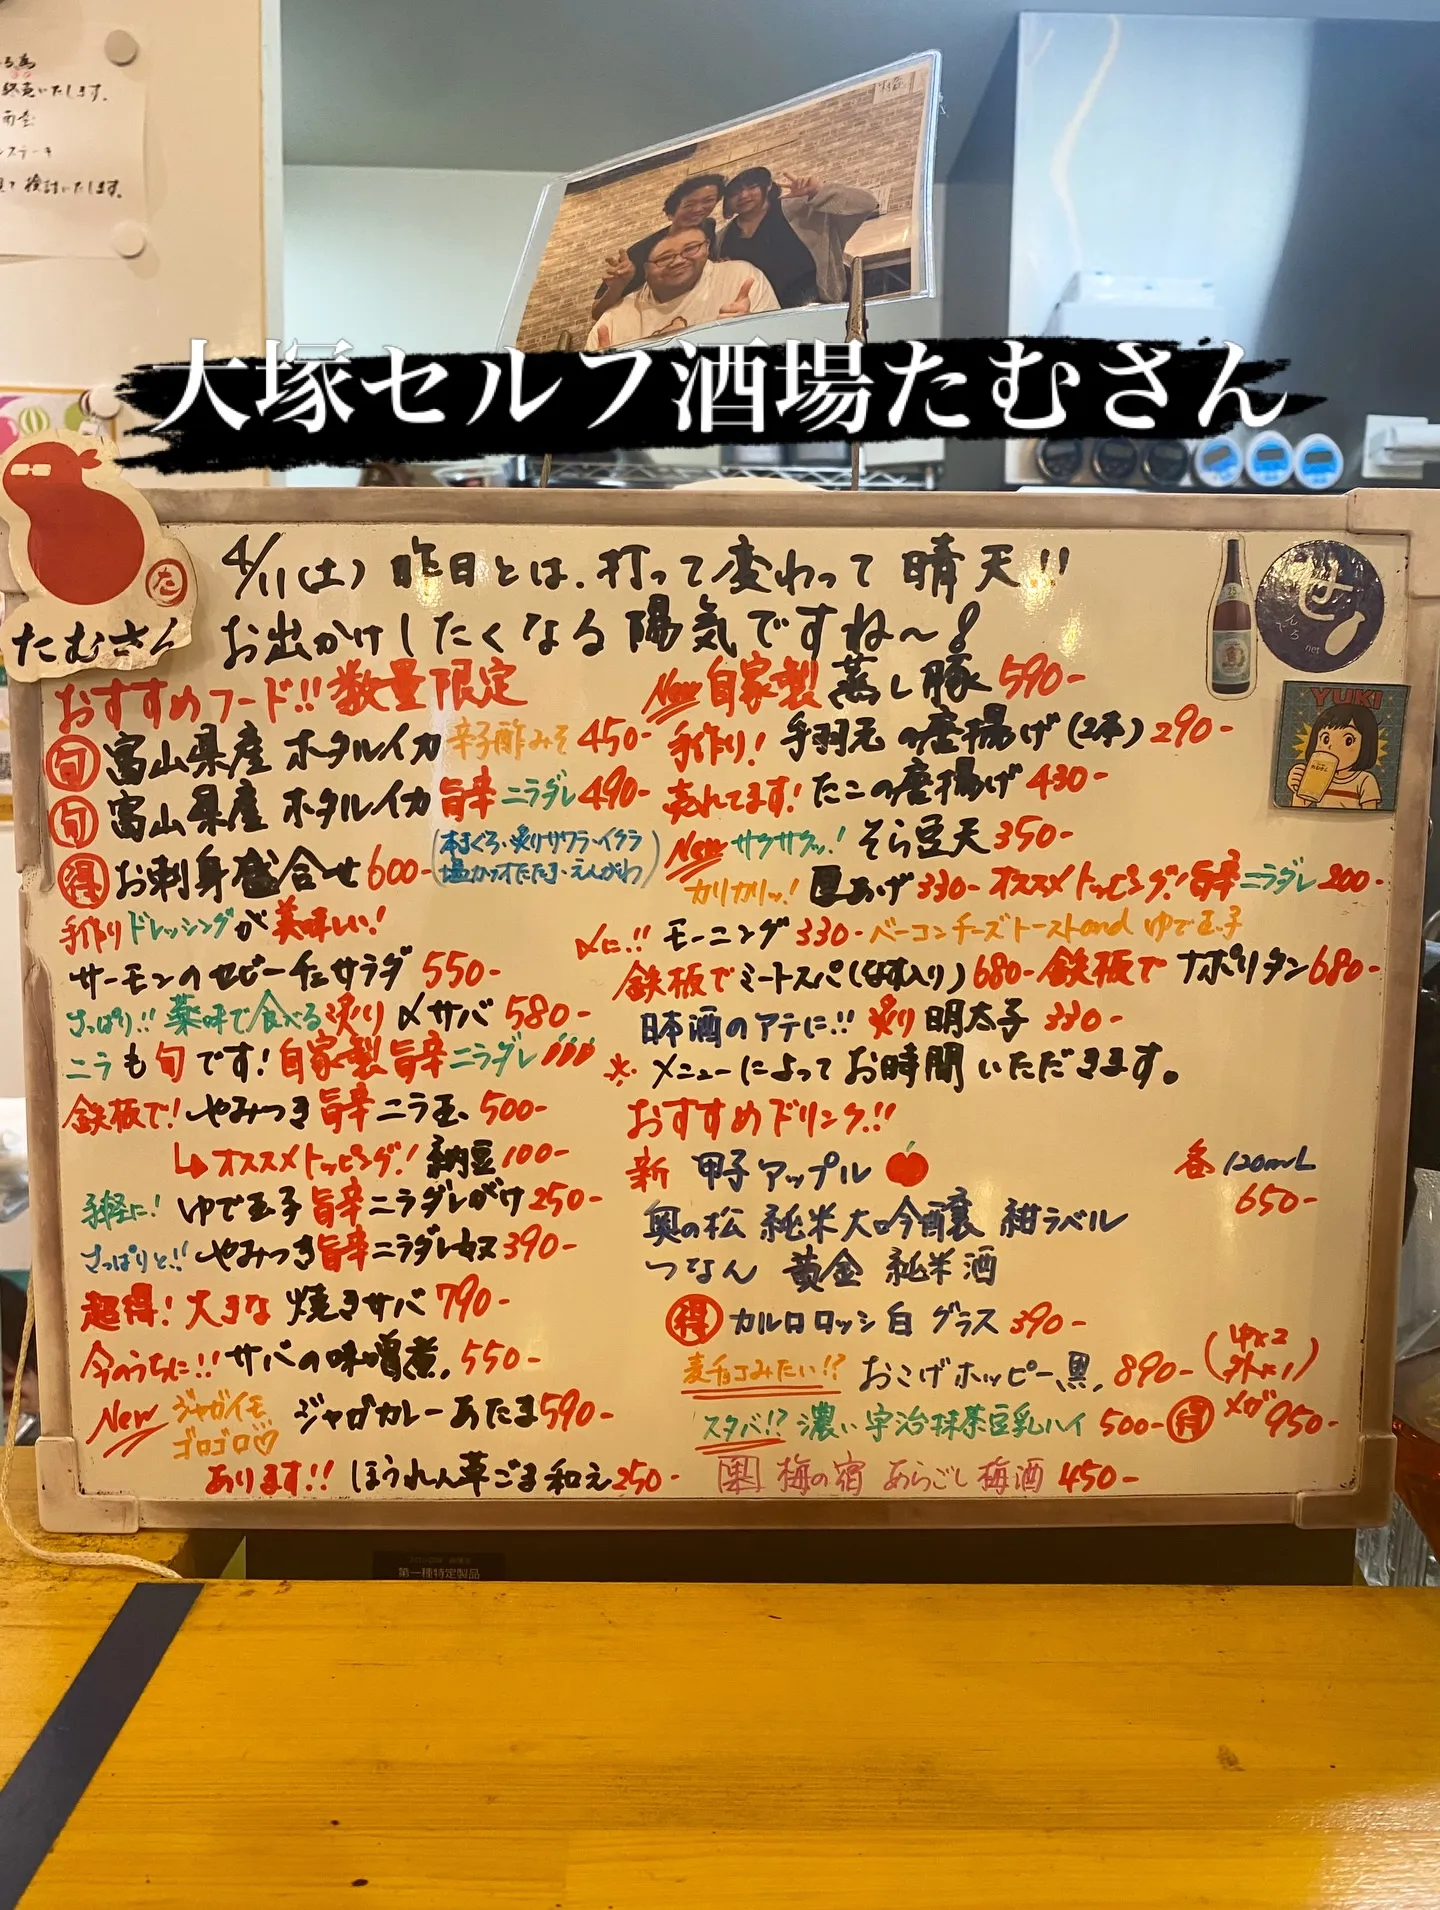 終売いたします。
検討いたします。
大塚セルフ酒場たむさん
た
たむさん
YUKI
4/11(土) 昨日とは、打って変わって 晴天!!
お出かけしたくなる陽気ですね〜!
おすすめフード!! 数量限定
旬 富山県産 ホタルイカ 辛子酢みそ 450-
旬 富山県産 ホタルイカ 旨辛ニラダレ 490-
得 お刺身盛合せ 600- (本まぐろ・炙りサワラ・イクラ
塩カツオたたき・えんがわ)
手作りドレッシングが美味しい!
サーモンのセビーチェサラダ 550-
さっぱり!! 薬味で食べる炙り〆サバ 580-
ニラも旬です! 自家製旨辛ニラダレ
鉄板で! やみつき旨辛ニラ玉 500-
↳オススメトッピング! 納豆 100-
手軽に! ゆで玉子旨辛ニラダレがけ 250-
さっぱりと!! やみつき旨辛ニラダレ奴 390-
超得! 大きな 焼きサバ 790-
今のうちに!! サバの味噌煮 550-
New ジャガイモゴロゴロ♡ ジャガカレーあたま 590-
あります!! ほうれん草ごま和え 250-
New 自家製 蒸し豚 590-
手作り! 手羽元の唐揚げ(2本) 290-
売れてます! たこの唐揚げ 430-
New サクサクッ! そら豆天 350-
カリカリッ! 厚あげ 330- オススメトッピング! 旨辛ニラダレ 200-
〆に!! モーニング 330- ベーコンチーズトーストand ゆで玉子
鉄板で ミートスパ(なす入り) 680- 鉄板で ナポリタン 680-
日本酒のアテに!! 炙り明太子 330-
※メニューによってお時間いただきます。
おすすめドリンク!!
新 甲子アップル 各120mL
650-
奥の松 純米大吟醸 紺ラベル
つなん 黄金 純米酒
得 カルロロッシ 白 グラス 390-
麦チョコみたい!? おこげホッピー黒 890- (中×2
外×1)
スタバ!? 濃い宇治抹茶豆乳ハイ 500- 得 メガ950-
梅の宿 あらごし梅酒 450-
第一種特定製品